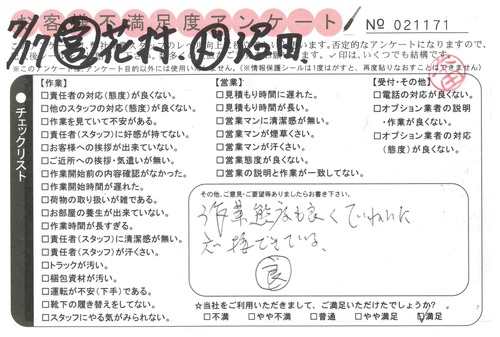 お客様不満足度アンケート
No 021171
7/17 営 花村 門 沼田
※このアンケート用紙は、アンケート目的以外には使用いたしません。(※情報保護シールは1度はがすと、再度貼りなおすことはできません)
チェックリスト
【作業】
□責任者の対応(態度)が良くない。
□他のスタッフの対応(態度)が良くない。
□作業を見ていて不安がある。
□責任者(スタッフ)に好感が持てない。
□お客様への挨拶が出来ていない。
□ご近所への挨拶・気遣いが無い。
□作業開始前の内容確認がなかった。
□作業開始時間が遅れた。
□荷物の取り扱いが雑である。
□お部屋の養生が出来ていない。
□作業時間が長すぎる。
□責任者(スタッフ)に清潔感が無い。
□責任者(スタッフ)が汗くさい。
□トラックが汚い。
□梱包資材が汚い。
□運転が不安(下手)である。
□靴下の履き替えをしてない。
□スタッフにやる気がみられない。
【営業】
□見積もり時間に遅れた。
□見積もり時間が長い。
□営業マンに清潔感が無い。
□営業マンが煙草くさい。
□営業マンが汗くさい。
□営業態度が良くない。
□営業の説明と作業が一致してない。
【受付・その他】
□電話の対応が良くない。
□オプション業者の説明
・作業が良くない。
□オプション業者の対応
(態度)が良くない。
その他、ご意見・ご要望等ありましたらお書き下さい。
作業態度も良くていねいに
応接できている。
良
☆当社をご利用いただきまして、ご満足いただけたでしょうか?
□不満 □やや不満 □普通 □やや満足 ☑満足